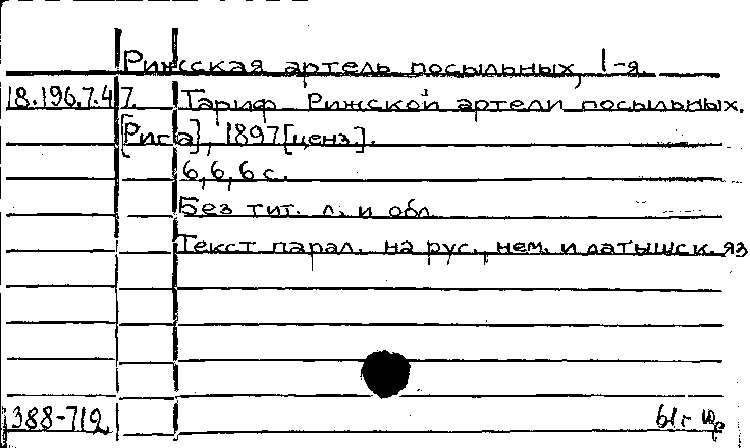 Рижсская артель посыльных, 1-я.
18.196.7.47. Тариф Рижской артели посыльных.
[Рига], 1897 [ценз.].
6, 6, 6 с.
Без тит. л. и обл.
Текст парал. на рус., нем. и латышск. яз
388-712